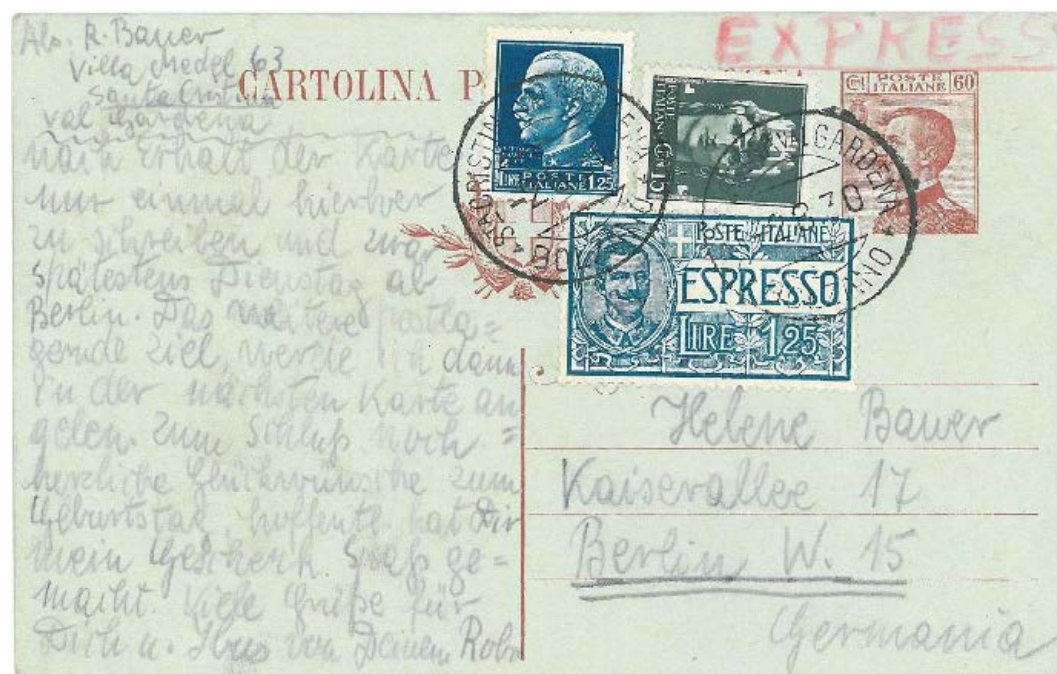 Abs. R. Bauer
Villa Medel 63
Santa Cristina
Val Gardena
EXPRESS
CARTOLINA P
POSTE ITALIANE
Cmi 60
LIRE 1,25
POSTE ITALIANE
POSTE ITALIANE
C. 15
POSTE ITALIANE
ESPRESSO
LIRE 1,25
nach Erhalt der Karte
nur einmal hierher
zu schreiben und zwar
spätestens Dienstag ab
Berlin. Das weitere postla=
gernde Ziel, werde ich dann
in der nächsten Karte an
geben. Zum Schluß noch =
herzliche Glückwünsche zum
Geburtstag, hoffentl. hat Dir
mein Geschenk Spaß ge=
macht. Viele Grüße für
Dich u. von Deinem
Helene Bauer
Kaiserallee 17
Berlin W. 15
Germania